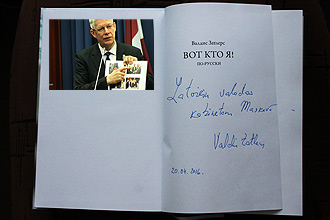 Валдис Затлерс
ВОТ КТО Я!
ПО-РУССКИ
Latviešu valodas
kabinetam Maskavā –
Valdis Zatlers
20.04.2016.